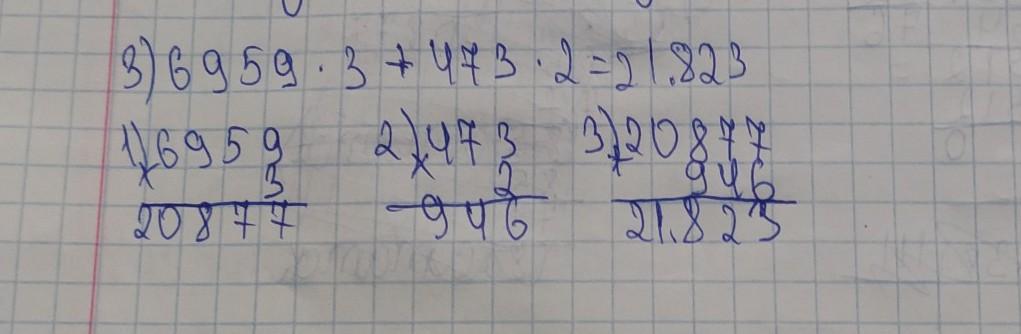 3) 6959 · 3 + 473 · 2 = 21.823
1) 6959 2) 473 3) 20877
× 3 × 2 + 946
20877 946 21.823